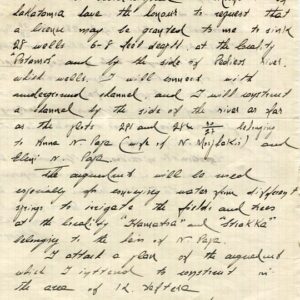 Lakatamia have the honour to request that
a license may be granted to me to sink
28 wells 6-8 feet depth, at the locality
"Potamos" and by the side of Pedieos River,
which wells I will connect with
underground channel and I will construct
a channel by the side of the river as far
as the plots 281 and 282 belonging
to Anna N. Papa (wife of N.) and
Eleni N. Papa.
The augument will be used
especially for conveying water from different
springs to irrigate the fields and trees
at the locality "Kamatra" and "Strakka"
belonging to the heirs of N. Papa.
I attach a plan of the augument
which I intend to construct in
the area of 12